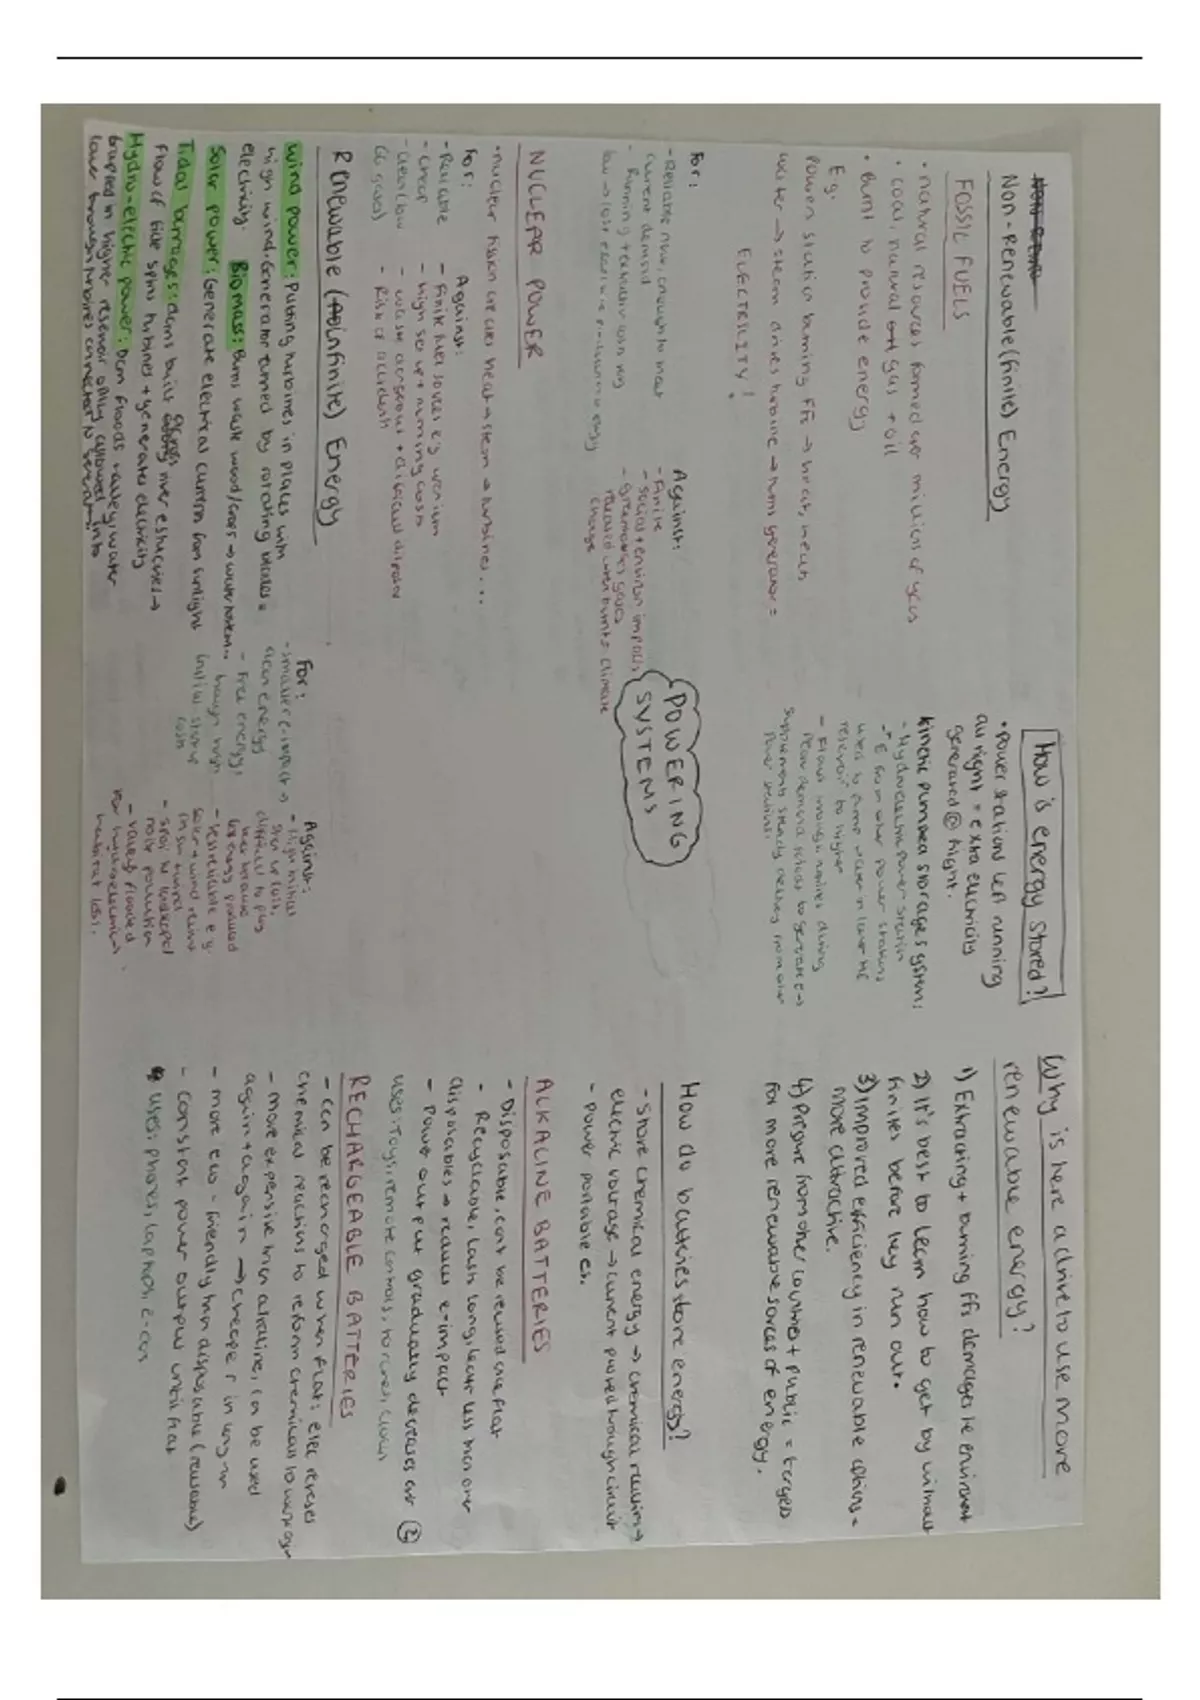 Non-Renewable (finite) Energy
FOSSIL FUELS
• natural resources formed over millions of years
• coal, natural gas + oil
• Burnt to provide energy
E.g.
Power station burning FFs → heat, heats
water → steam drives turbine → turns generator =
ELECTRICITY!
For:
- Reliable now, enough to meet
current demand
- Running +
Against:
- Finite
- social + environ impacts
- greenhouses gases
released when burnt = climate
change
NUCLEAR POWER
• nuclear fission creates heat → steam → turbines...
For:
- Reliable
- Cheap
- clean (low
GG gases)
Against:
- Finite fuel sources e.g. uranium
- High set up + running costs
- waste dangerous + difficult dispose
- Risk of accidents
Renewable (infinite) Energy
wind power: Putting turbines in places with
high wind. Generator turned by rotating blades =
electricity. Biomass: Burns waste wood/crops → water → steam...
Solar power: Generate electrical current from sunlight
Tidal barrages: dams built across river estuaries →
flow of tide spins turbines + generates electricity
Hydro-electric power: Dam floods valley, water
trapped in higher reservoir only allowed into
lower through turbines connected to generator
For:
- smaller e-impact
clean energy
- Free energy,
though high
initial startup
costs
Against:
- High initial
start up costs,
difficult to pay
back because
energy produced
- less reliable e.g.
solar + wind relies
on sun + wind
- spoil landscape
noise pollution
- valleys flooded
for hydroelectric →
habitat loss.
POWERING
SYSTEMS
How is energy stored?
• power stations left running
all night = extra electricity
generated @ night.
kinetic pumped storage system:
- Hydroelectric power station
- E from other power stations
used to pump water in lower
reservoir to higher
- Flows through turbines during
Peak demand periods to generate →
supplements steady delivery from other
power stations.
Why is there a drive to use more
renewable energy?
1) Extracting + burning FFs damages the environment
2) It's best to learn how to get by without
finites before they run out.
3) improved efficiency in renewable options =
more attractive.
4) Pressure from other countries + public = targets
for more renewable sources of energy.
How do batteries store energy?
- Store chemical energy → chemical reactions →
electric voltage → current pushed through circuit
- power portables.
ALKALINE BATTERIES
- Disposable, can't be reused once flat
- Recyclable, lasts long, leak less than other
disposables → reduces e-impact
- Power output gradually decreases over
uses: Toys, remote controls, torches, clocks
RECHARGEABLE BATTERIES
- can be recharged when flat: elec reverses
chemical reactions to reform chemicals to work again
- more expensive than alkaline, can be used
again + again → cheaper in long run
- more eco-friendly than disposable (reusable)
- constant power output until flat
uses: phones, laptops, e-cars